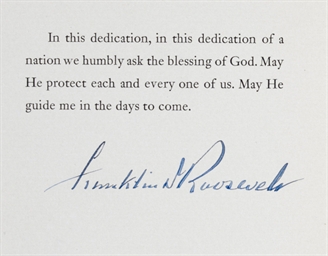 In this dedication, in this dedication of a
nation we humbly ask the blessing of God. May
He protect each and every one of us. May He
guide me in the days to come.
Franklin D Roosevelt